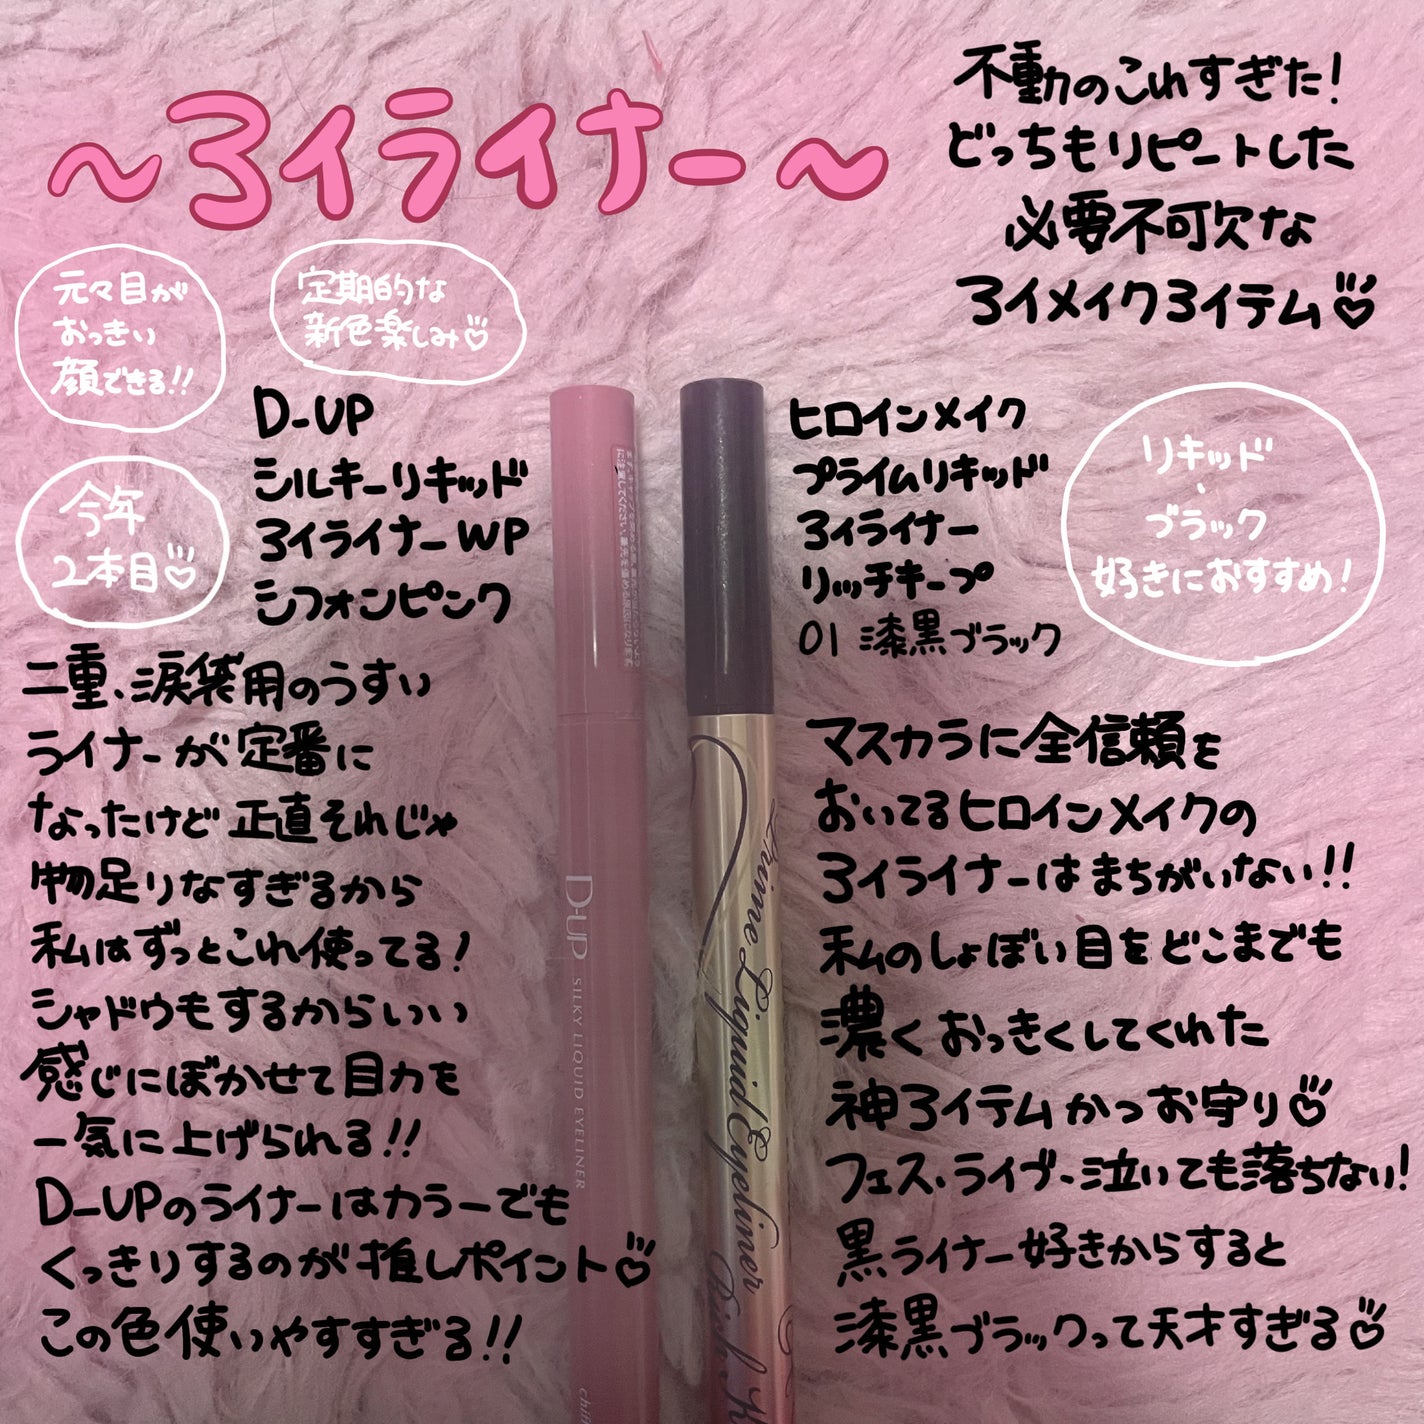 ~アイライナー~
不動のこれすぎた!
どっちもリピートした
必要不可欠な
アイメイクアイテム♡
元々目が
おっきい
顔できる!!
定期的な
新色楽しみ♡
今年
2本目♡
D-UP
シルキーリキッド
アイライナーWP
シフォンピンク
二重、涙袋用のうすい
ライナーが定番に
なったけど正直それじゃ
物足りなすぎるから
私はずっとこれ使ってる!
シャドウもするからいい
感じにぼかせて目力を
一気に上げられる!!
D-UPのライナーはカラーでも
くっきりするのが推しポイント♡
この色使いやすすぎる!!
ヒロインメイク
プライムリキッド
アイライナー
リッチキープ
01 漆黒ブラック
リキッド
・
ブラック
好きにおすすめ!
マスカラに全信頼を
おいてるヒロインメイクの
アイライナーはまちがいない!!
私のしょぼい目をどこまでも
濃くおっきくしてくれた
神アイテムかつお守り♡
フェス、ライブ、泣いても落ちない!
黒ライナー好きからすると
漆黒ブラックって天才すぎる♡
D-UP SILKY LIQUID EYELINER
Prime Liquid Eyeliner